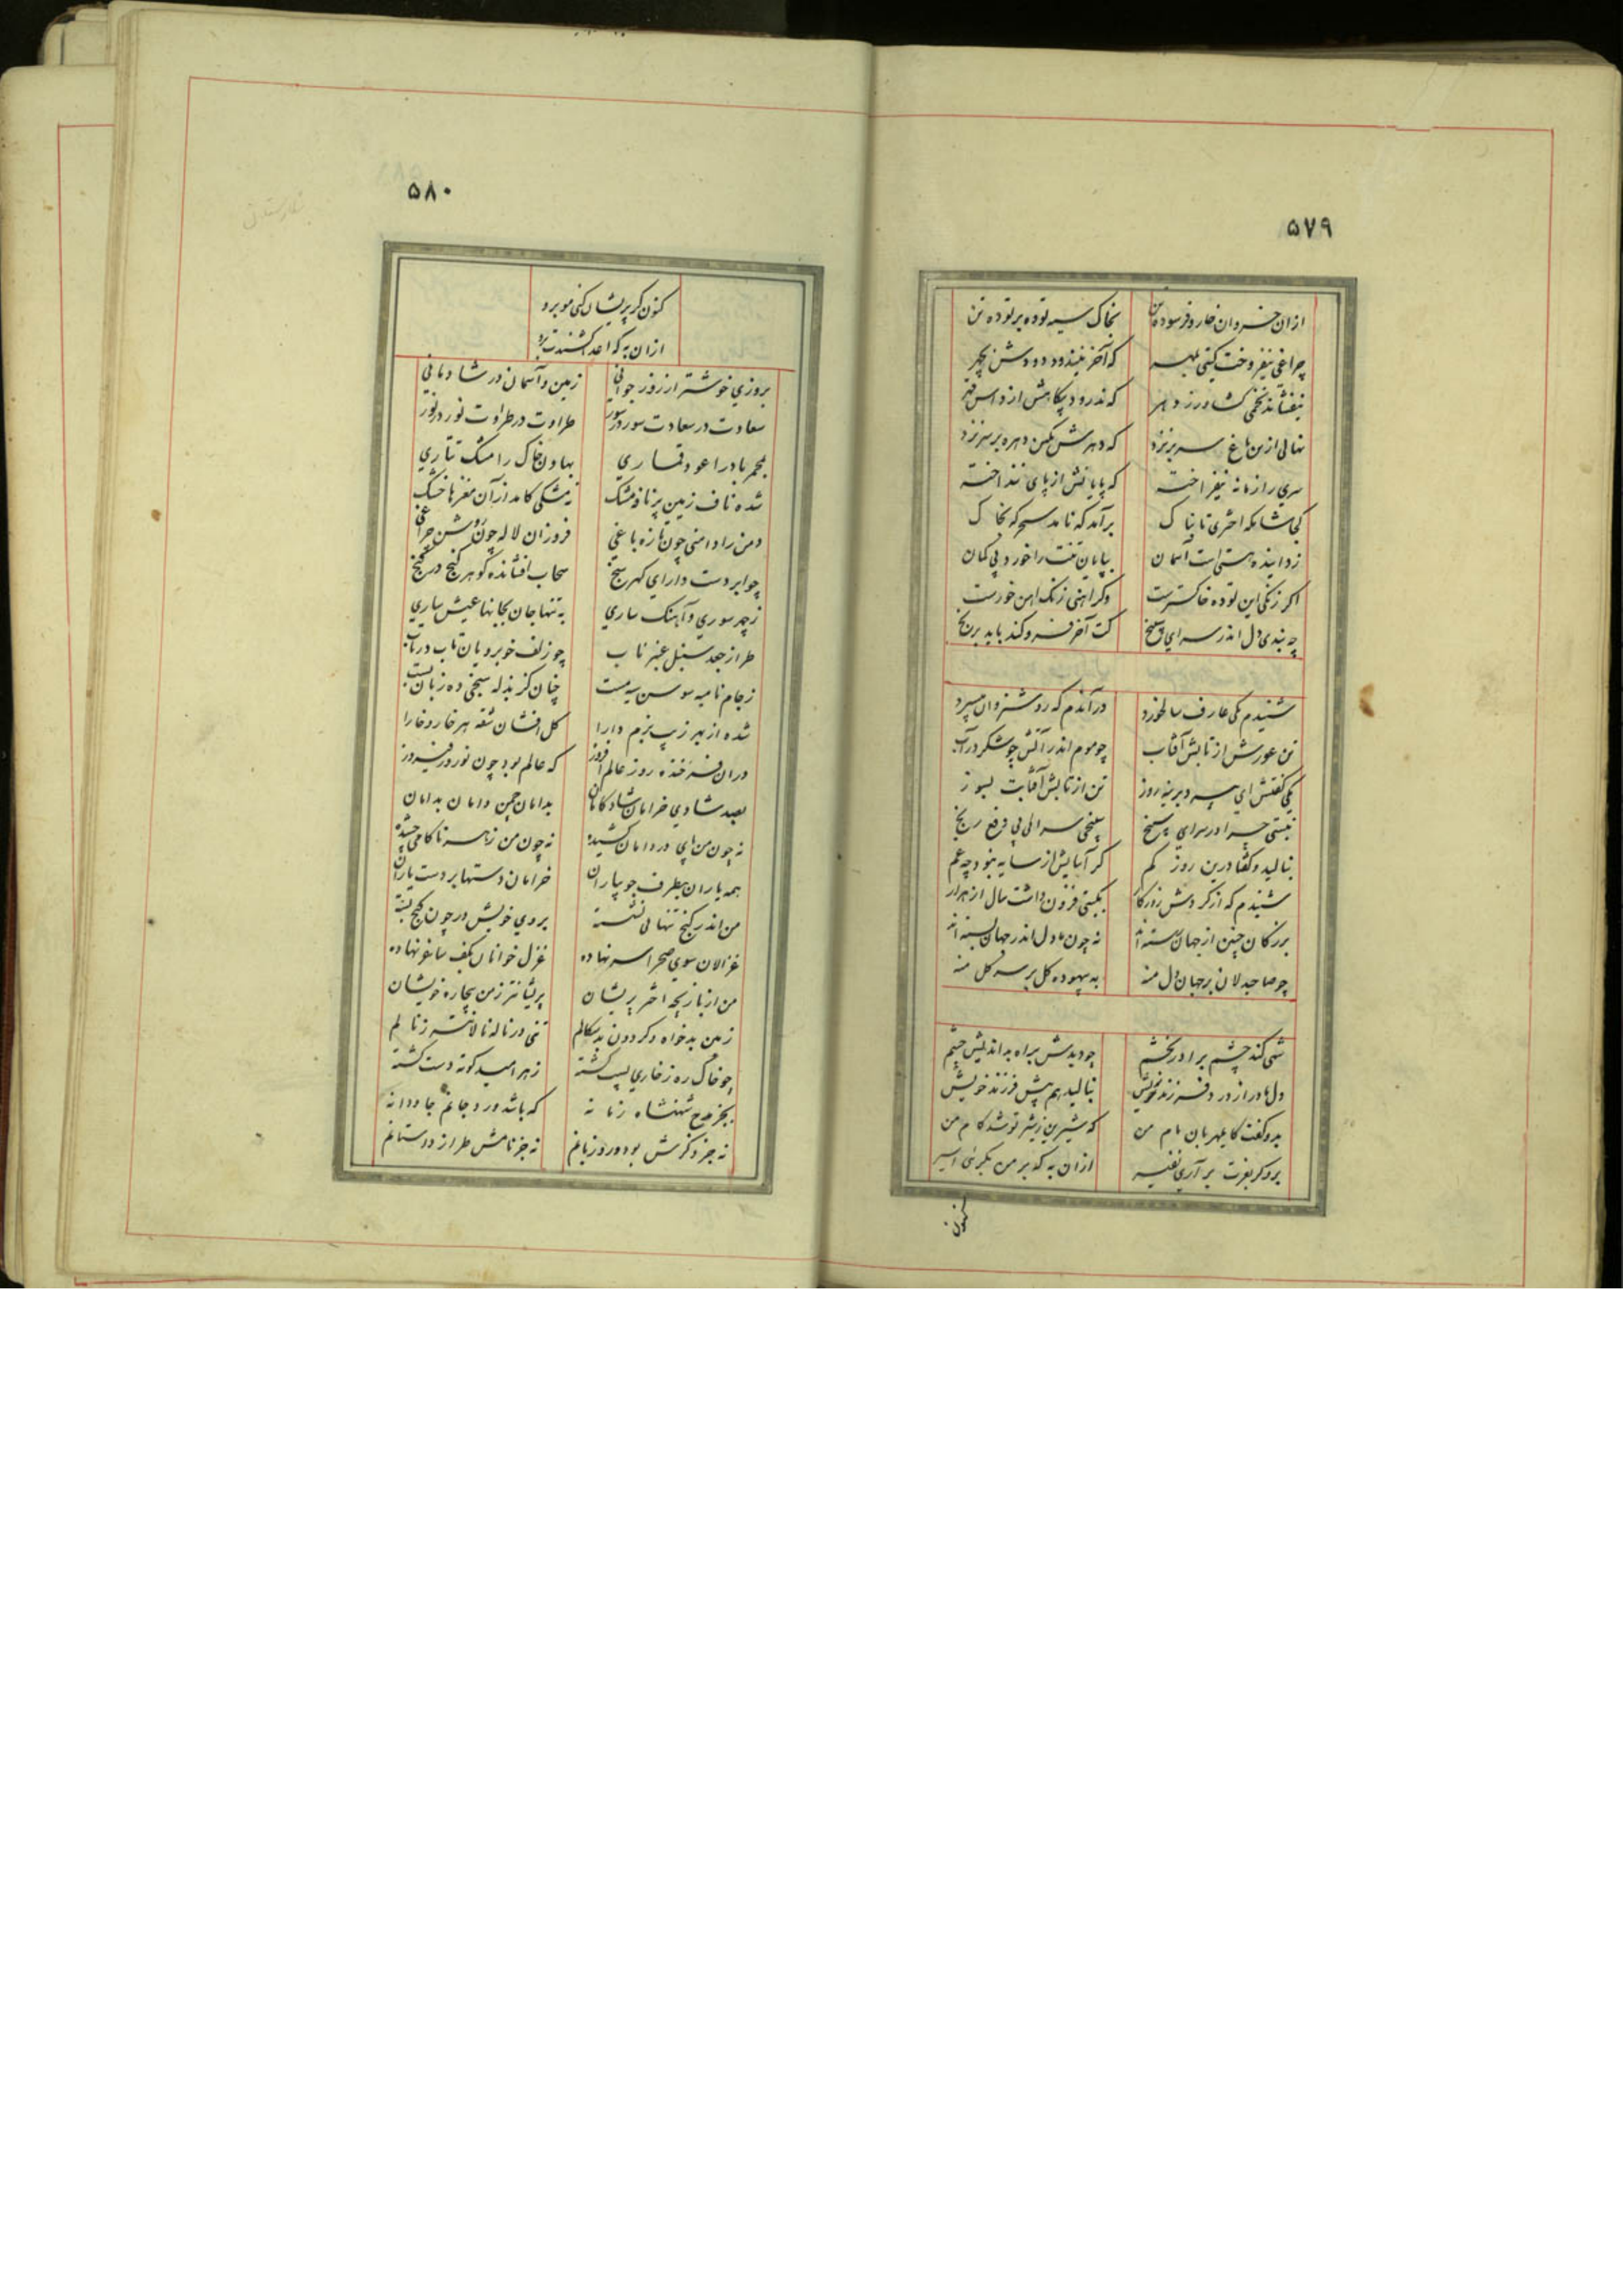 ۵۷۹
ازان خسروان خار و فرسوده تن بخاک سیه توده بر توده تن
چراغی نیفروخت گیتی بمهر که آخر نیندود دودش بچهر
نیفشاند تخمی کشاورز دهر که ندرود بیگاهش از داس قهر
نهالی ازین باغ سر بر نزد که دهرش بکین دهره بر سر نزد
سری را زمانه نیفراخته که پایانش از پای ننداخته
کجا شامگه اختری تابناک برآمد که نامد سحرگه بخاک
زداینده هستی است آسمان بپایان تنت را خورد بی گمان
اگر زنگی این توده خاکسترست وگر آهنی زنگ آهن خورست
چه بندی دل اندر سرای سپنج کت آخر فرو کند باید برنج
شنیدم یکی عارف سالخورد درآندم که روشن روان میسپرد
تن عورش از تابش آفتاب چو موم اندر آتش چو شکر در آب
یکی گفتش ای پیر دیرینه روز تن از تابش آفتابت بسوز
نبستی چرا در سرای سپنج سپنجی سرائی پی دفع رنج
بنالید و گفتا درین روز کم گر آسایش از سایه نبود چه غم
شنیدم که از گردش روزگار بگیتی فزون داشت سال از هزار
بزرگان چنین از جهان رسته اند نه چون ما دل اندر جهان بسته اند
چو صاحبدلان بر جهان دل منه به بیهوده گل بر سر گل منه
شهی کند چشم برادر بخشم چو دیدش براه بداندیش چشم
دل مادر از درد فرزند خویش بنالید هم پیش فرزند خویش
بدو گفت کای مهربان مام من که شیرین ز شیر تو شد کام من
برو گر بفرت برآری نفیر ازان به که بر من بگرئی اسیر
کنون
۵۸۰
کنون گر پریشان کنی مو برو
ازان به که اعدا کشندت برو
بروزی خوشتر از روز جوانی زمین و آسمان در شادمانی
سعادت در سعادت سور در سور طراوت در طراوت نور در نور
بمجمر باد را عود قماری بهاون خاک را مشک تتاری
شده ناف زمین پر نافه مشک ز مشکی کامد از آن مغزها خشک
دمن را دامنی چون تازه باغی فروزان لاله چون روشن چراغی
چو ابر دست دارای گهر سنج سحاب افشانده گوهر گنج در گنج
ز چهر سوری و آهنگ ساری به تنها جان بجانها عیش ساری
طراز جعد سنبل عنبر ناب چو زلف خوبرویان تاب در تاب
ز جام نامیه سوسن سیه مست چنان کز بذله سنجی ده زبان بست
شده از بهر زیب بزم دارا گل افشان شقه هر خار و خارا
دران فرخنده روز عالم افروز که عالم بود چون نوروز فیروز
بصد شادی خرامان شادکامان بدامان چمن دامان بدامان
نه چون من پای در دامان کشیده نه چون من زهر ناکامی چشیده
همه یاران بطرف جویباران خرامان دستها بر دست یاران
من اندر کنج تنهائی نشسته بروی خویش در چون گنج بسته
غزالان سوی صحرا سر نهاده غزل خوانان بکف ساغر نهاده
من از بازیچه اختر پریشان پریشانتر ز من بیچاره خویشان
زمین بدخواه و گردون بدسگالم تنی در ناله نالانتر ز نالم
چو خاک ره ز خاری پست گشته ز هر امید کوته دست گشته
بجز مدح شهنشاه زمانه که باشد ورد جانم جاودانه
نه جز ذکرش بود ورد زبانم نه جز نامش طراز داستانم